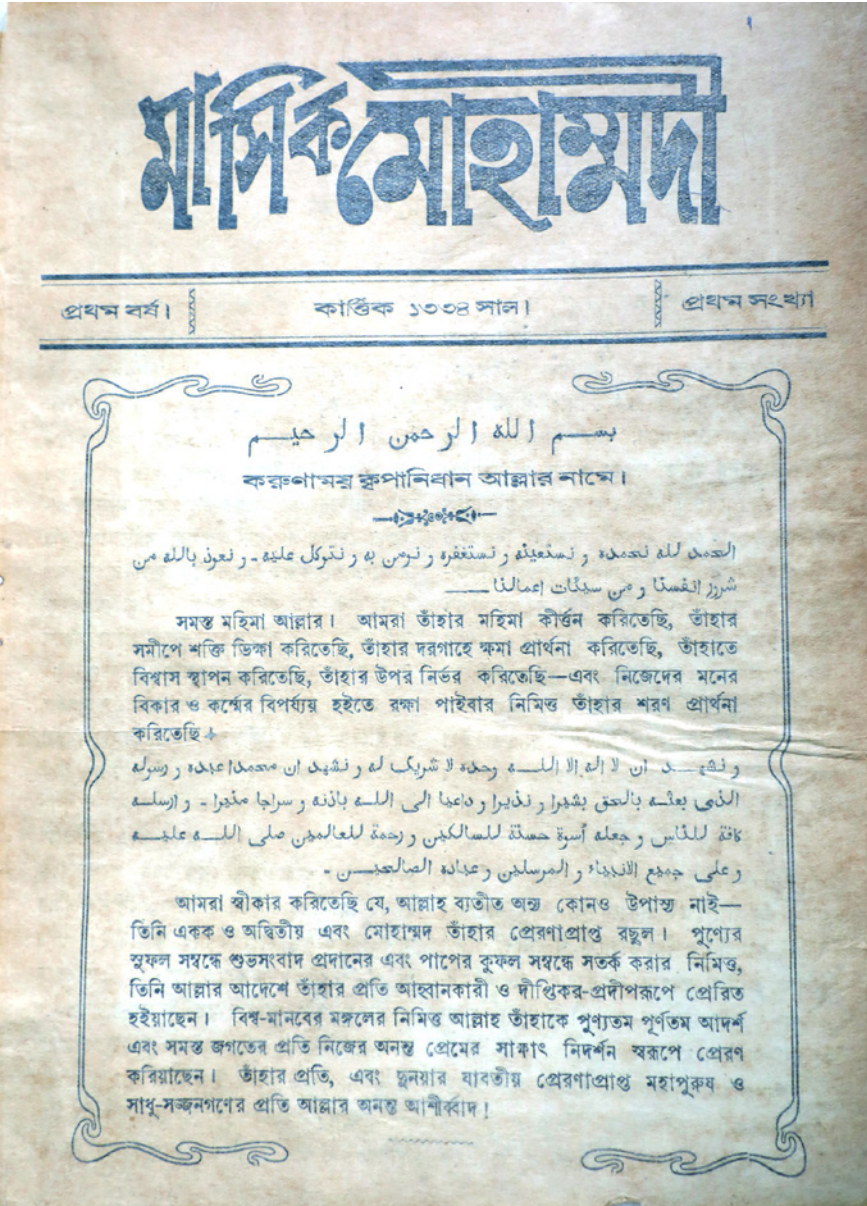 ১
মাসিক মোহাম্মদী
প্রথম বর্ষ।
কার্ত্তিক ১৩৩৪ সাল।
প্রথম সংখ্যা
بسم الله الرحمن الرحيم
করুণাময় কৃপানিধান আল্লার নামে।
الحمد لله نحمده و نستعينه و نستغفره و نومن به و نتوكل عليه - و نعوذ بالله من
شرور انفسنا و من سيئات اعمالنا
সমস্ত মহিমা আল্লার। আমরা তাঁহার মহিমা কীর্ত্তন করিতেছি, তাঁহার
সমীপে শক্তি ভিক্ষা করিতেছি, তাঁহার দরগাহে ক্ষমা প্রার্থনা করিতেছি, তাঁহাতে
বিশ্বাস স্থাপন করিতেছি, তাঁহার উপর নির্ভর করিতেছি—এবং নিজেদের মনের
বিকার ও কর্ম্মের বিপর্য্যয় হইতে রক্ষা পাইবার নিমিত্ত তাঁহার শরণ প্রার্থনা
করিতেছি।
و نشهد ان لا اله الا الله وحده لا شريك له و نشهد ان محمدا عبده و رسوله
الذى بعثه بالحق بشيرا و نذيرا و داعيا الى الله باذنه و سراجا منيرا - و ارسله
كافة للناس و جعله أسوة حسنة للسالكين و رحمة للعالمين صلى الله عليه
و على جميع الانبياء و المرسلين و عباده الصالحين -
আমরা স্বীকার করিতেছি যে, আল্লাহ ব্যতীত অন্য কোনও উপাস্য নাই—
তিনি একক ও অদ্বিতীয় এবং মোহাম্মদ তাঁহার প্রেরণাপ্রাপ্ত রছুল। পুণ্যের
সুফল সম্বন্ধে শুভসংবাদ প্রদানের এবং পাপের কুফল সম্বন্ধে সতর্ক করার নিমিত্ত,
তিনি আল্লার আদেশে তাঁহার প্রতি আহ্বানকারী ও দীপ্তিকর-প্রদীপরূপে প্রেরিত
হইয়াছেন। বিশ্ব-মানবের মঙ্গলের নিমিত্ত আল্লাহ তাঁহাকে পুণ্যতম পূর্ণতম আদর্শ
এবং সমস্ত জগতের প্রতি নিজের অনন্ত প্রেমের সাক্ষাৎ নিদর্শন স্বরূপে প্রেরণ
করিয়াছেন। তাঁহার প্রতি, এবং দুনয়ার যাবতীয় প্রেরণাপ্রাপ্ত মহাপুরুষ ও
সাধু-সজ্জনগণের প্রতি আল্লার অনন্ত আশীর্ব্বাদ!